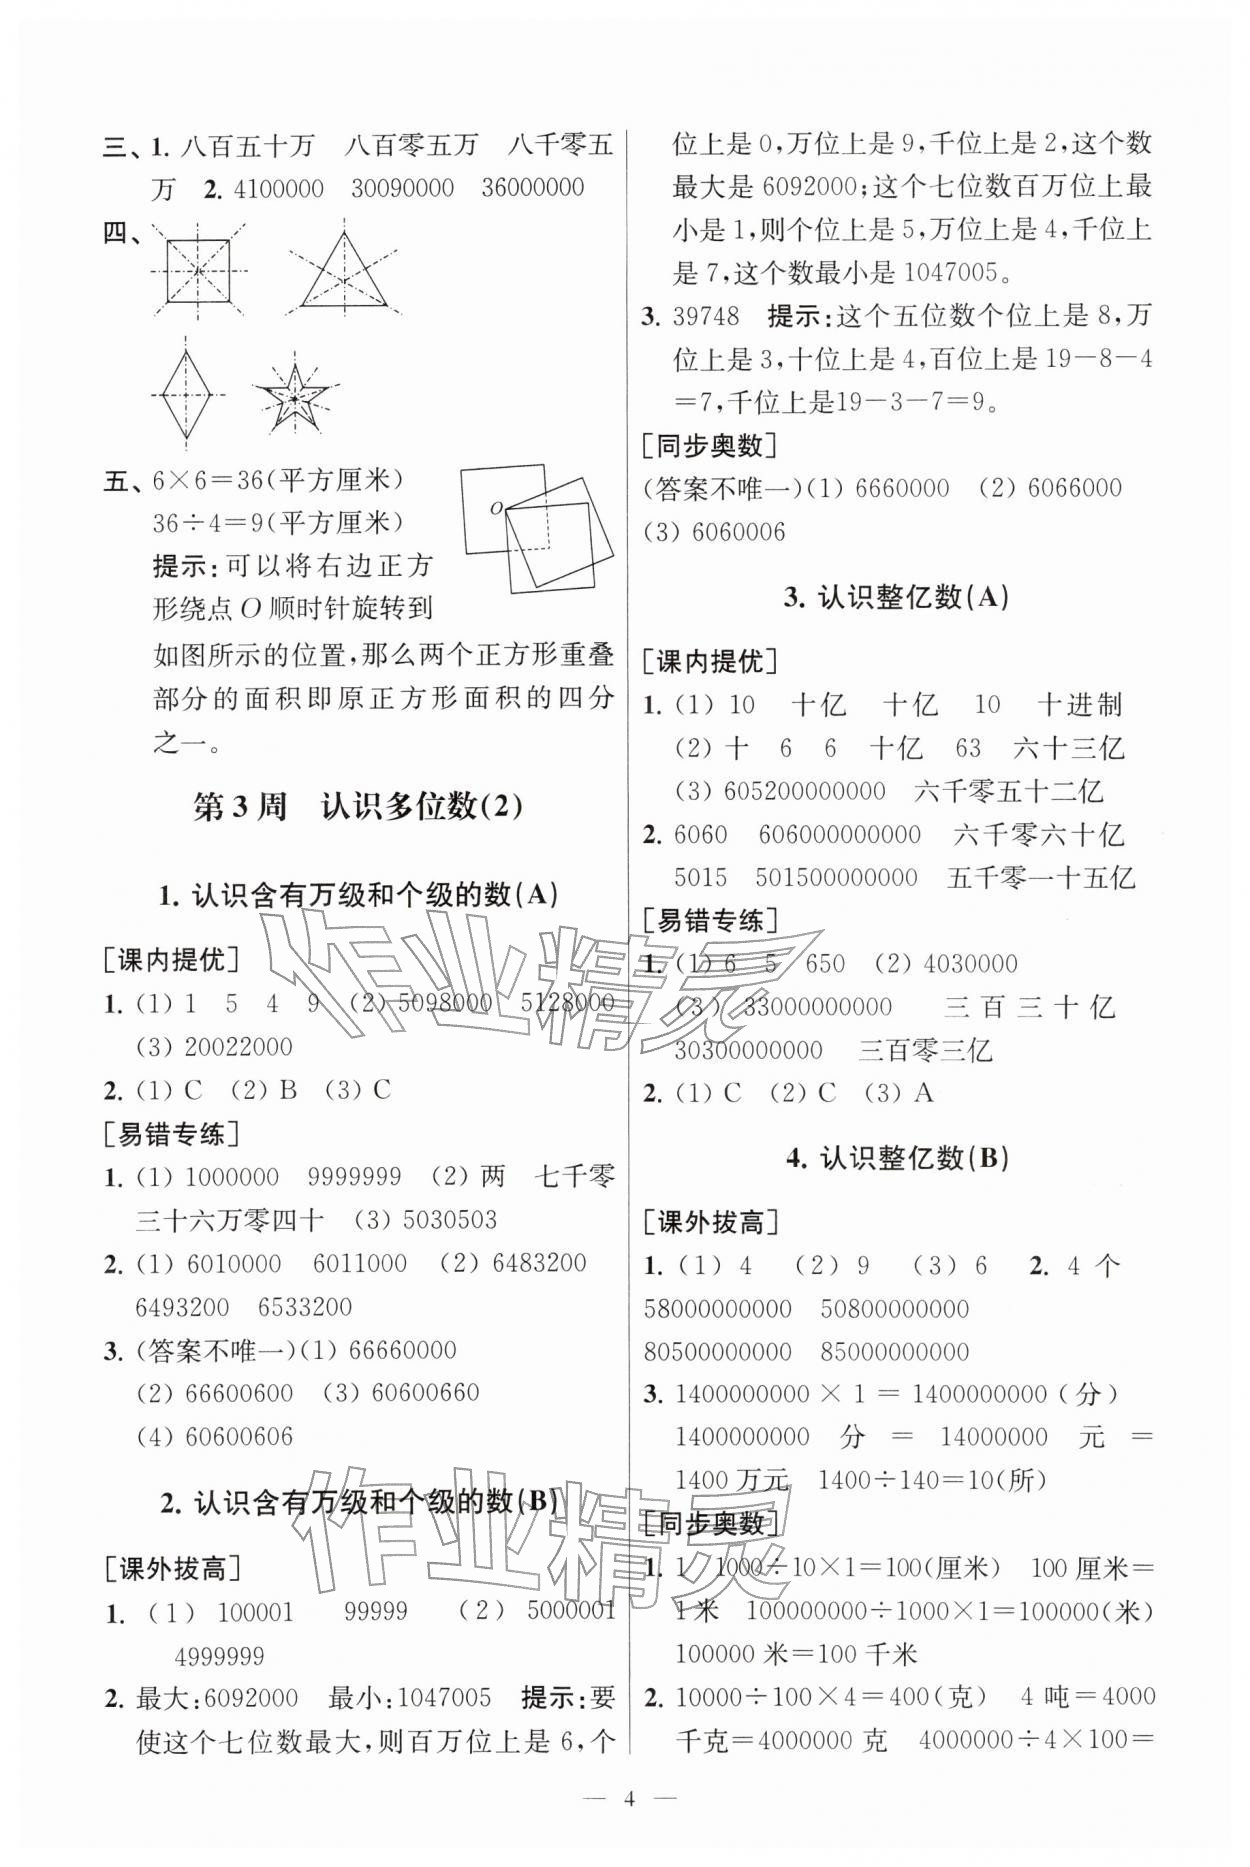 三、1. 八百五十万　八百零五万　八千零五
万　2. 4100000　30090000　36000000
四、
五、6×6=36(平方厘米)
36÷4=9(平方厘米)
提示:可以将右边正方
形绕点 O 顺时针旋转到
如图所示的位置,那么两个正方形重叠
部分的面积即原正方形面积的四分
之一。
O
第 3 周　认识多位数(2)
1. 认识含有万级和个级的数(A)
[课内提优]
1. (1) 1　5　4　9　(2) 5098000　5128000
(3) 20022000
2. (1) C　(2) B　(3) C
[易错专练]
1. (1) 1000000　9999999　(2) 两　七千零
三十六万零四十　(3) 5030503
2. (1) 6010000　6011000　(2) 6483200
6493200　6533200
3. (答案不唯一)(1) 66660000
(2) 66600600　(3) 60600660
(4) 60600606
2. 认识含有万级和个级的数(B)
[课外拔高]
1. (1) 100001　99999　(2) 5000001
4999999
2. 最大:6092000　最小:1047005　提示:要
使这个七位数最大,则百万位上是 6,个
位上是 0,万位上是 9,千位上是 2,这个数
最大是 6092000;这个七位数百万位上最
小是 1,则个位上是 5,万位上是 4,千位上
是 7,这个数最小是 1047005。
3. 39748　提示:这个五位数个位上是 8,万
位上是 3,十位上是 4,百位上是 19-8-4
=7,千位上是19-3-7=9。
[同步奥数]
(答案不唯一)(1) 6660000　(2) 6066000
(3) 6060006
3. 认识整亿数(A)
[课内提优]
1. (1) 10　十亿　十亿　10　十进制
(2) 十　6　6　十亿　63　六十三亿
(3) 605200000000　六千零五十二亿
2. 6060　606000000000　六千零六十亿
5015　501500000000　五千零一十五亿
[易错专练]
1. (1) 6　5　650　(2) 4030000
(3) 33000000000　三百三十亿
30300000000　三百零三亿
2. (1) C　(2) C　(3) A
4. 认识整亿数(B)
[课外拔高]
1. (1) 4　(2) 9　(3) 6　2. 4 个
58000000000　50800000000
80500000000　85000000000
3. 1400000000×1=1400000000(分)
1400000000 分 = 14000000 元 =
1400 万元　1400÷140=10(所)
[同步奥数]
1. 1　1000÷10×1=100(厘米)　100 厘米=
1 米　100000000÷1000×1=100000(米)
100000 米=100 千米
2. 10000÷100×4=400(克)　4 吨=4000
千克=4000000 克　4000000÷4×100=
— 4 —
作业精灵
作业精灵